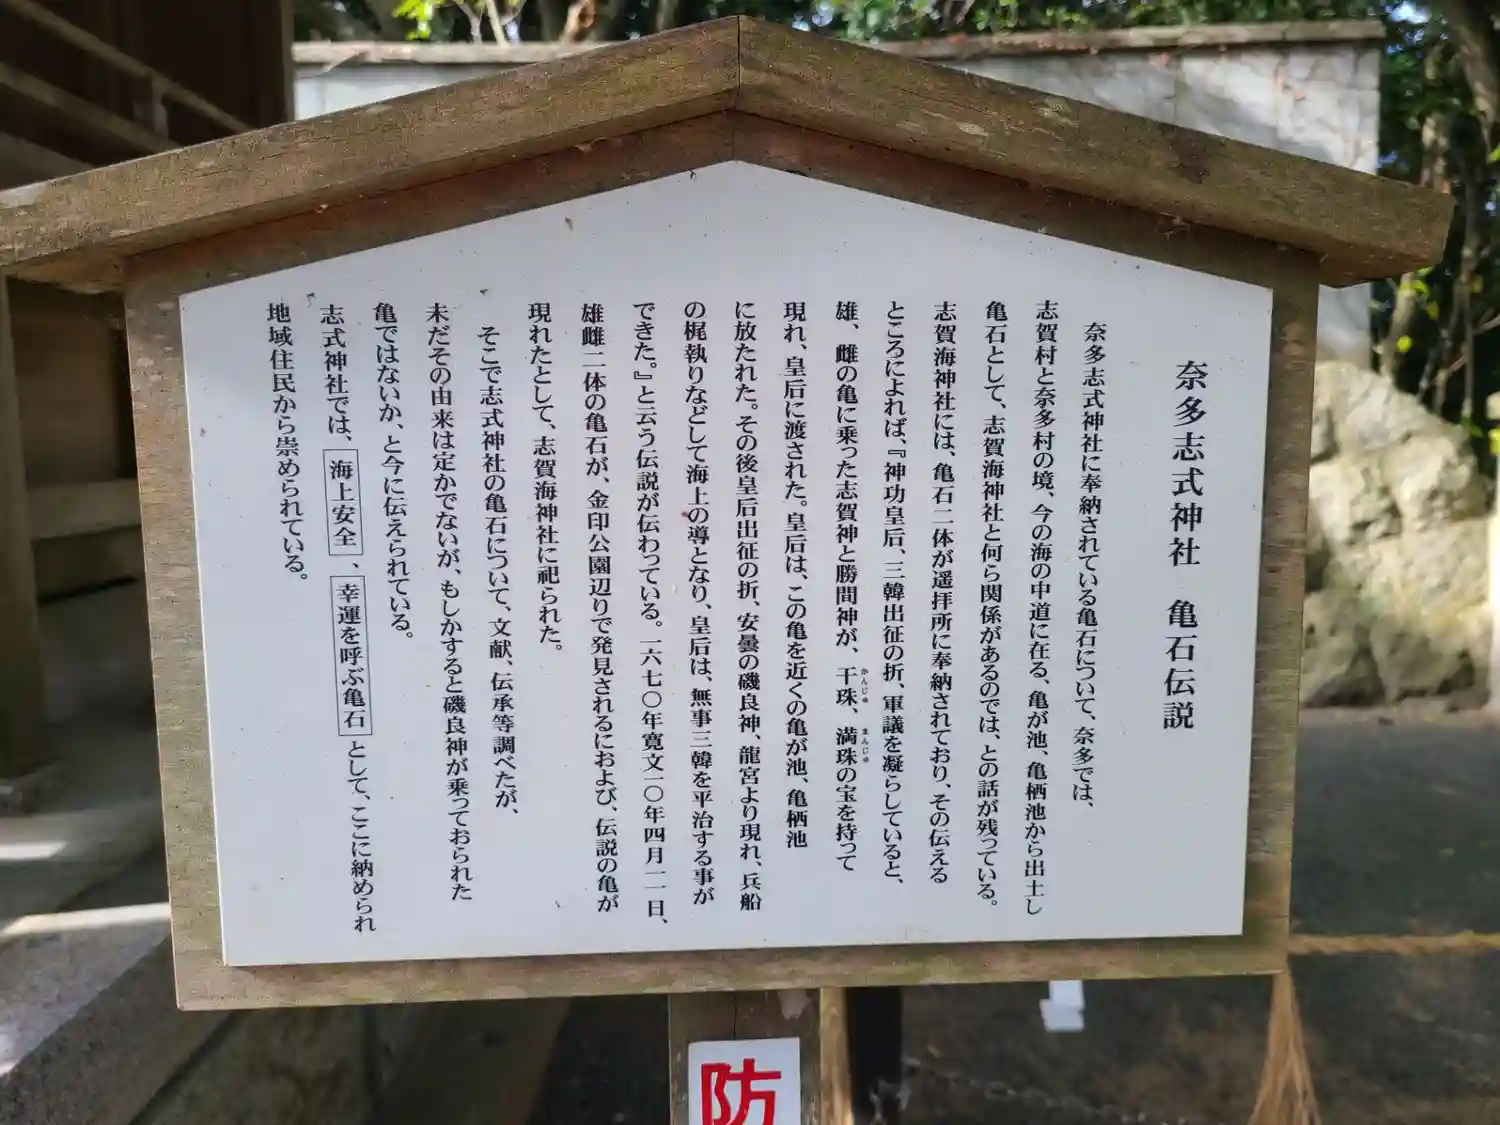 奈多志式神社　亀石伝説
奈多志式神社に奉納されている亀石について、奈多では、
志賀村と奈多村の境、今の海の中道に在る、亀が池、亀栖池から出土し
亀石として、志賀海神社と何ら関係があるのでは、との話が残っている。
志賀海神社には、亀石二体が遥拝所に奉納されており、その伝える
ところによれば、『神功皇后、三韓出征の折、軍議を凝らしていると、
雄、雌の亀に乗った志賀神と勝間神が、干珠、満珠の宝を持って
かんじゅ
まんじゅ
現れ、皇后に渡された。皇后は、この亀を近くの亀が池、亀栖池
に放たれた。その後皇后出征の折、安曇の磯良神、龍宮より現れ、兵船
の梶執りなどして海上の導となり、皇后は、無事三韓を平治する事が
できた。』と云う伝説が伝わっている。一六七〇年寛文一〇年四月一一日、
雄雌二体の亀石が、金印公園辺りで発見されるにおよび、伝説の亀が
現れたとして、志賀海神社に祀られた。
そこで志式神社の亀石について、文献、伝承等調べたが、
未だその由来は定かでないが、もしかすると磯良神が乗っておられた
亀ではないか、と今に伝えられている。
志式神社では、海上安全、幸運を呼ぶ亀石として、ここに納められ
地域住民から崇められている。
防